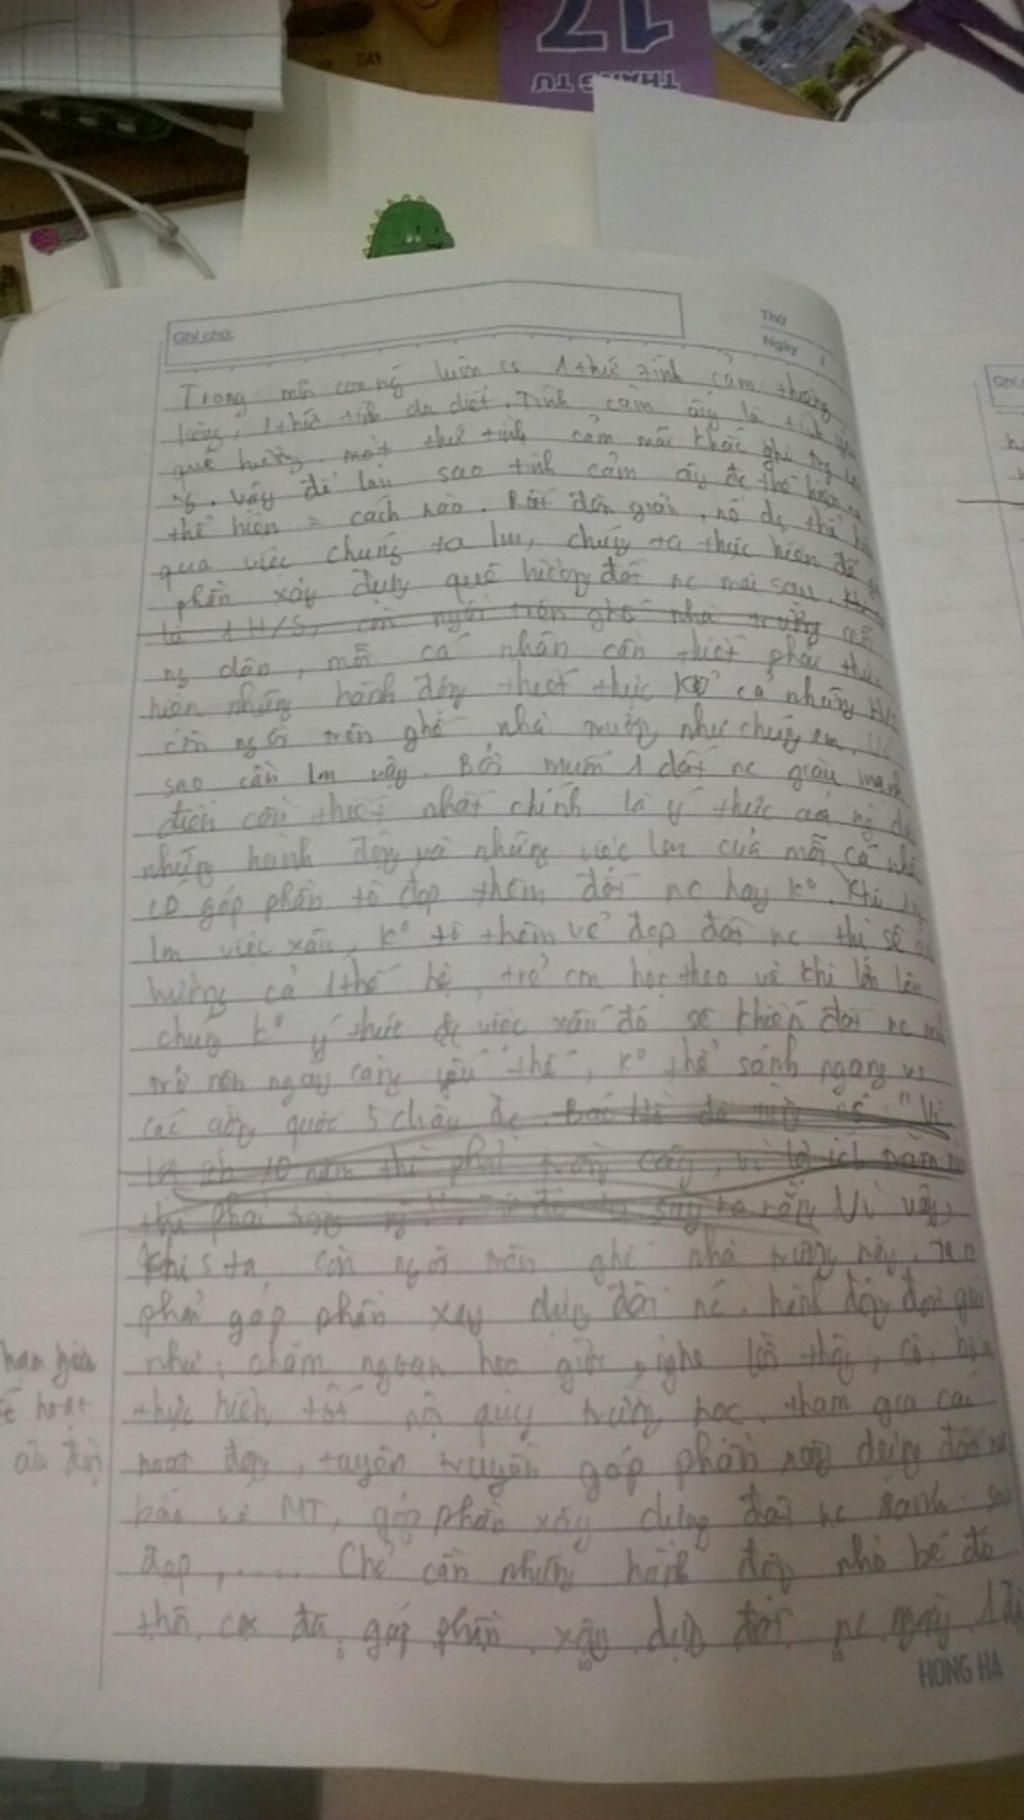 17
THÁNG TƯ
Ghi chú:
Thứ
Ngày
Trong mỗi con ng luôn có 1 thứ tình cảm thương
1 thứ tình da diết. Tình cảm ấy là tình
quê hương. một thứ tình cảm mãi khắc ghi
ng. Vậy để làm sao tình cảm ấy đc thể hiện
thể hiện = cách nào. Rất đơn giản, nó đc thể
qua việc chúng ta lm, chúng ta thực hiện để
phần xây dựng quê hương đất nc mai sau.
là 1 H/S, còn ngồi trên ghế nhà trường
ng dân, mỗi cá nhân cần thiết phải thực
hiện những hành động thiết thực kể cả những H/S
còn ngồi trên ghế nhà trường như chúng em.
sao cần lm vậy. Bởi muốn 1 đất nc giàu mạnh
điều cần thiết nhất chính là ý thức của ng
những hành động và những việc lm của mỗi cá
có góp phần tô đẹp thêm đất nc hay k°. Khi
lm việc xấu, k° tô thêm vẻ đẹp đất nc thì sẽ
hưởng cả 1 thế hệ, trẻ con học theo và khi lớn lên
chúng k° ý thức đc việc xấu đó sẽ khiến đất nc
trở nên ngày càng yếu thế, k° thể sánh ngang vs
các cường quốc 5 châu đc. Bác Hồ đã từng nói "Vì
lợi ích 10 năm thì phải trồng cây, vì lợi ích trăm
thì phải trồng ng" Vì vậy,
khi ta còn ngồi trên ghế nhà trường này
phải góp phần xây dựng đất nc. hành động đơn giản
như: chăm ngoan học giỏi, nghe lời thầy, cô,
thực hiện tốt nội quy trường học. tham gia các
hoạt động, tuyên truyền góp phần xây dựng đất
bảo vệ MT, góp phần xây dựng đất nc xanh
đẹp,.... Chỉ cần những hành động nhỏ bé đó
thôi đã góp phần xây dựng đất nc ngày
HONG HA